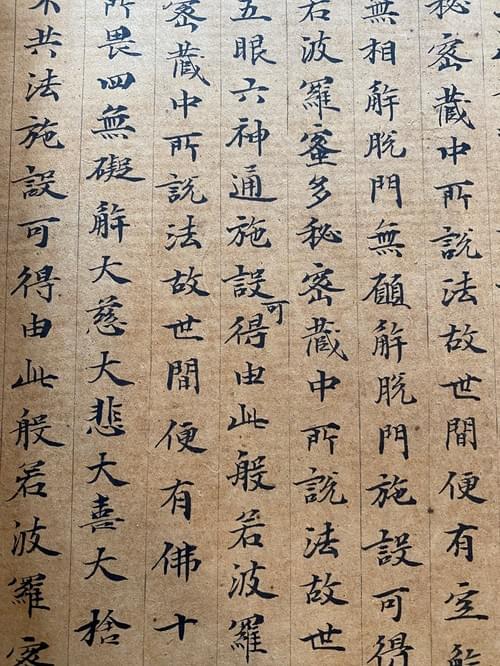 秘密藏中所說法故世間便有空解
無相解脫門無願解脫門施設可得
若波羅蜜多秘密藏中所說法故世
五眼六神通施設可得由此般若波羅
密藏中所說法故世間便有佛十
所畏四無礙解大慈大悲大喜大捨
不共法施設可得由此般若波羅蜜